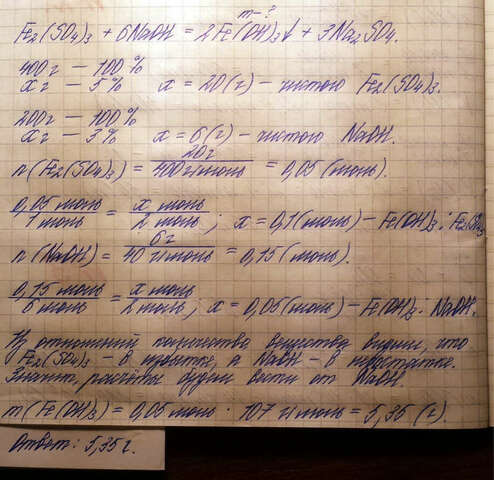 m-?
Fe₂(SO₄)₃ + 6NaOH = 2Fe(OH)₃↓ + 3Na₂SO₄.
400г — 100%
xг — 5% x = 20(г) – чистого Fe₂(SO₄)₃.
200г — 100%
xг — 3% x = 6(г) – чистого NaOH.
n(Fe₂(SO₄)₃) = 20г / 400г/моль = 0,05(моль).
0,05 моль / 1 моль = x моль / 2 моль; x = 0,1(моль) – Fe(OH)₃: Fe₂(SO₄)₃
n(NaOH) = 6г / 40 г/моль = 0,15(моль).
0,15 моль / 6 моль = x моль / 2 моль; x = 0,05(моль) – Fe(OH)₃: NaOH.
Из отношений количества вещества видим, что
Fe₂(SO₄)₃ – в избытке, а NaOH – в недостатке.
Значит, расчёты будем вести от NaOH.
m(Fe(OH)₃) = 0,05 моль · 107 г/моль = 5,35 (г).
Ответ: 5,35 г.